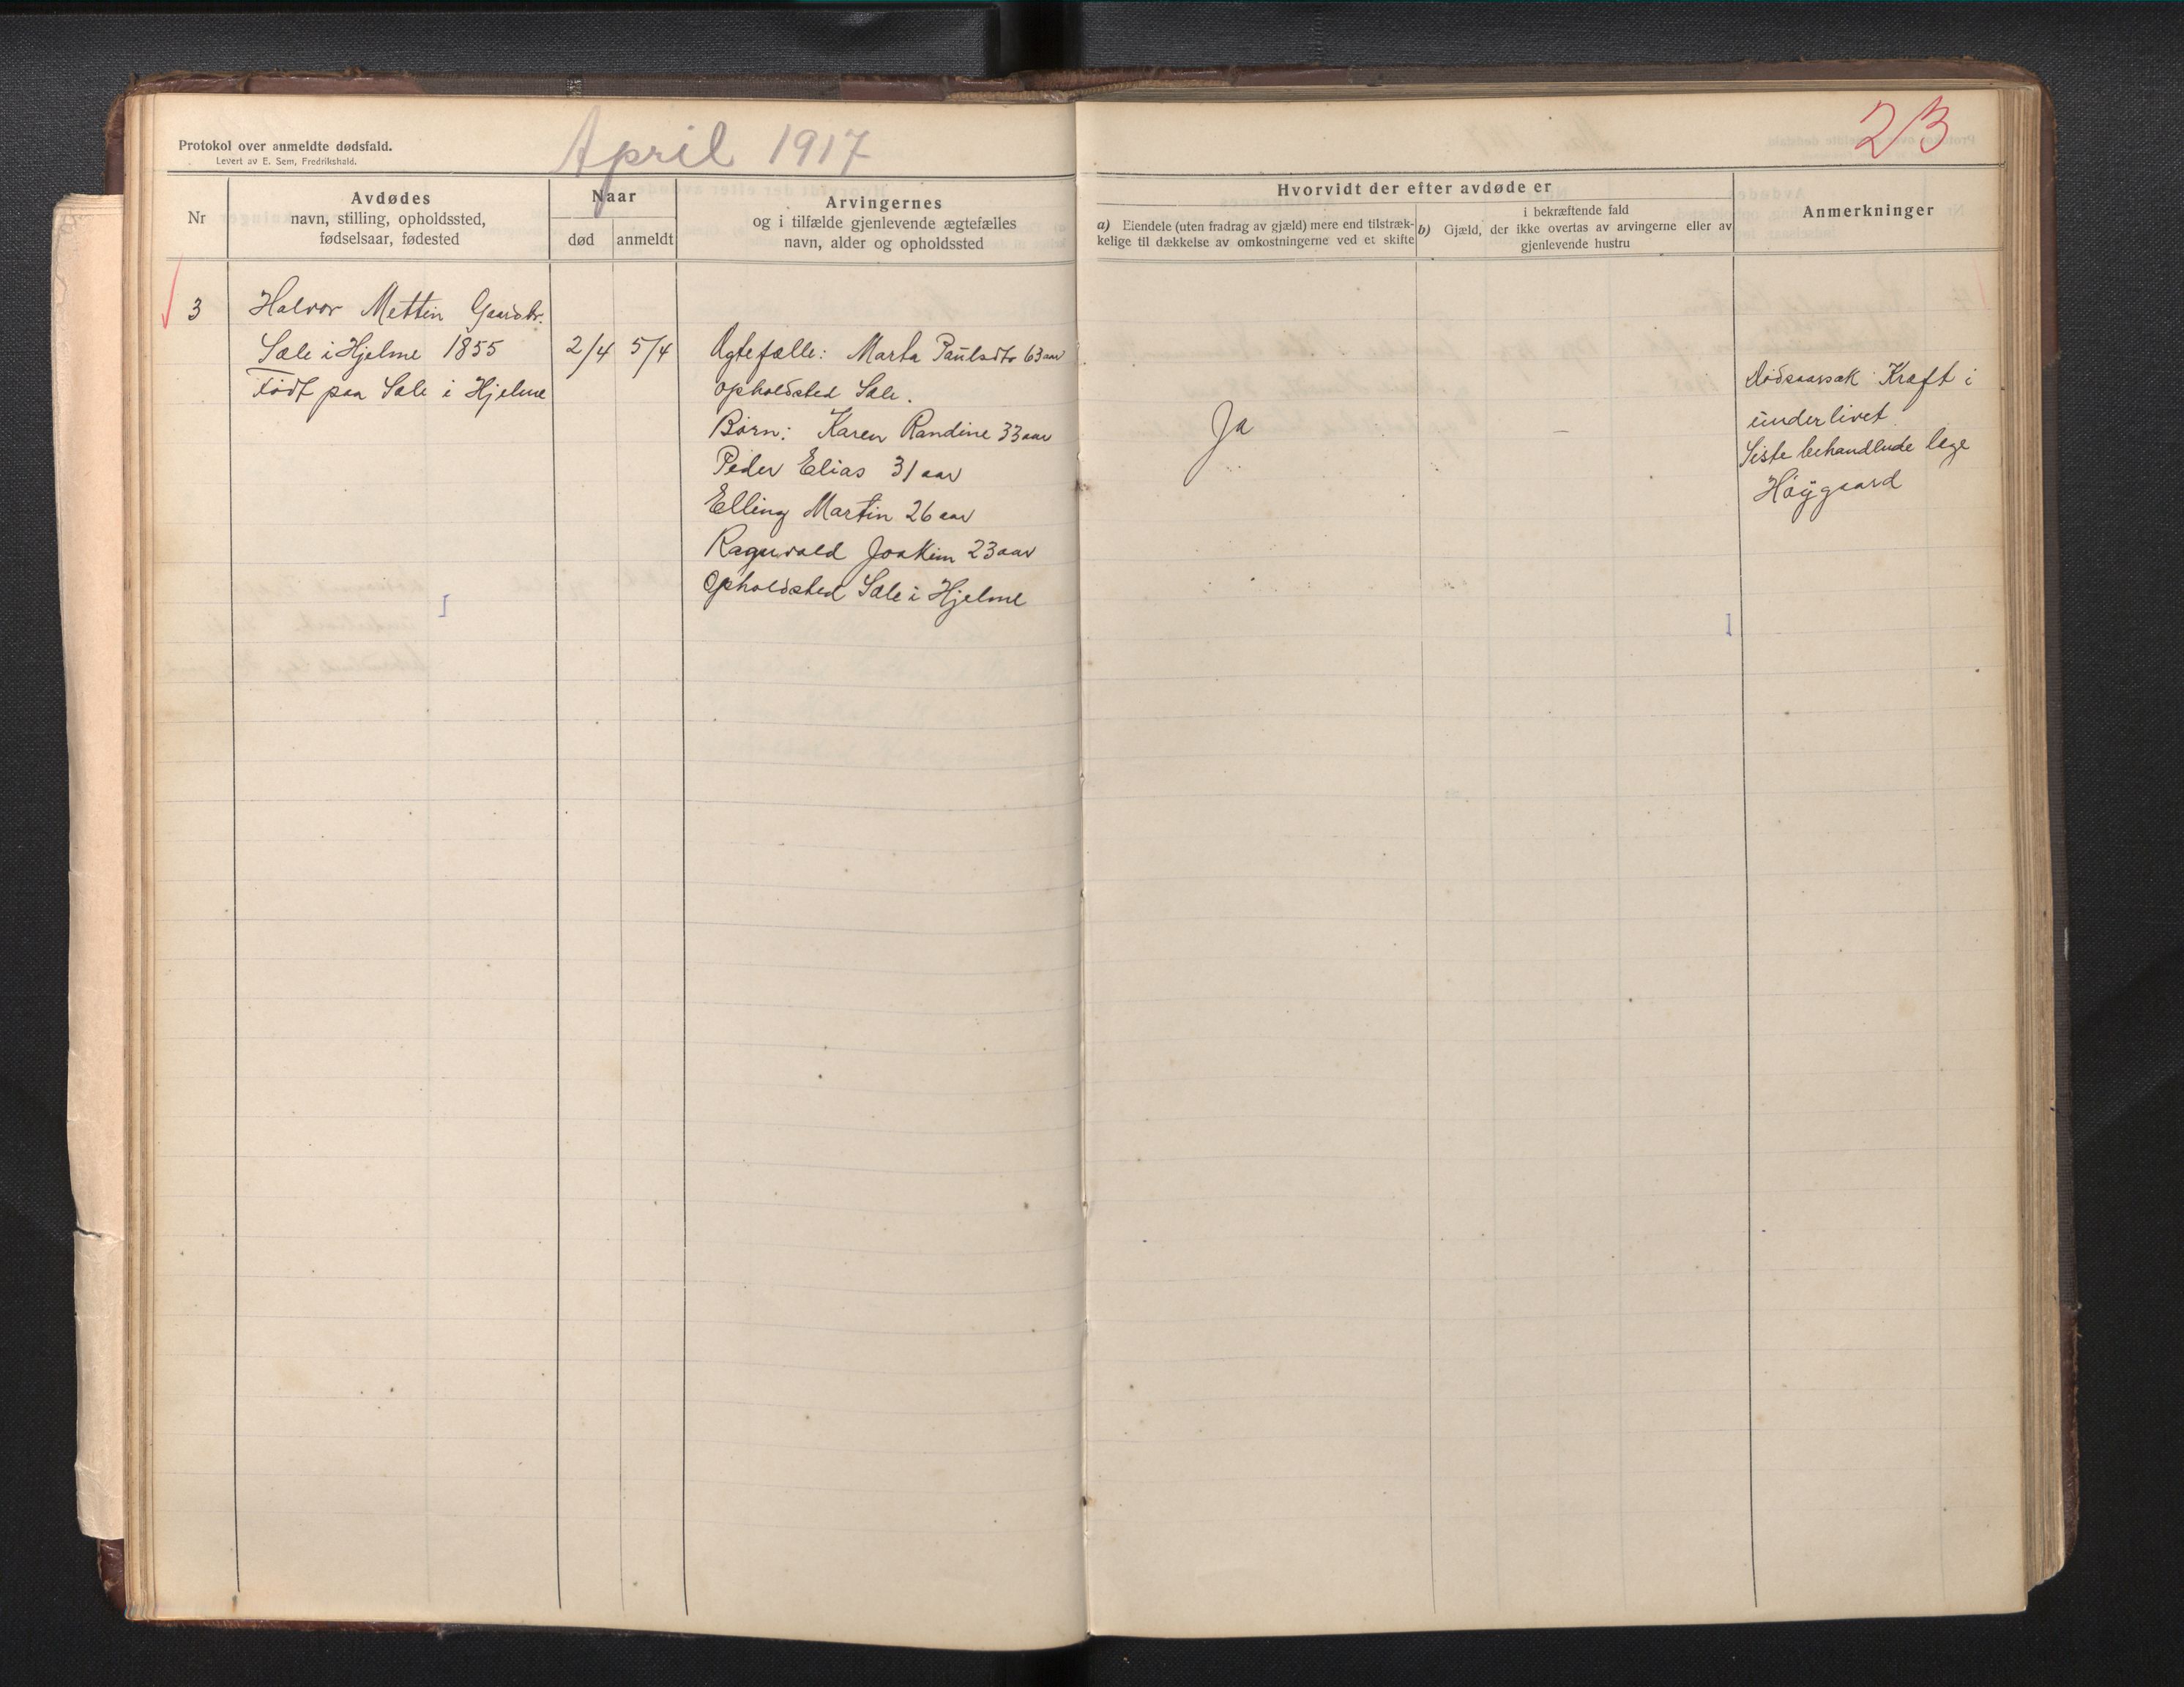 Protokol over anmeldte dødsfald.
Levert av E. Sem, Fredrikshald.
April 1917
23
Nr
Avdødes
navn, stilling, opholdssted,
fødselsaar, fødested
Naar
død
anmeldt
Arvingernes
og i tilfælde gjenlevende ægtefælles
navn, alder og opholdssted
Hvorvidt der efter avdøde er
a) Eiendele (uten fradrag av gjæld) mere end tilstræk-
kelige til dækkelse av omkostningerne ved et skifte
i bekræftende fald
b) Gjæld, der ikke overtas av arvingerne eller av
gjenlevende hustru
Anmerkninger
3
Halvor Mettin Gaardbr.
Sæle i Hjelme 1855
Født paa Sæle i Hjelme
2/4
5/4
Ægtefælle: Marta Paulsdtr 63 aar
opholdsted Sæle.
Børn: Karen Randine 33 aar
Peder Elias 31 aar
Elling Martin 26 aar
Ragnvald Joakim 23 aar
Opholdsted Sæle i Hjelme
Ja
–
Dødsaarsak Kræft i
underlivet.
Siste behandlende læge
Høygaard